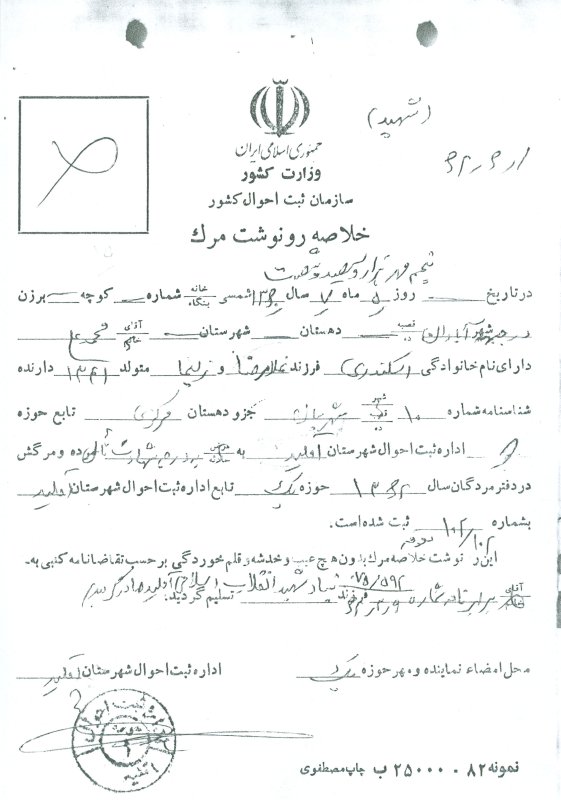 (شهید)
جمهوری اسلامی ایران
وزارت کشور
سازمان ثبت احوال کشور
خلاصه رونوشت مرگ
پنجم مهر هزار و سیصد و شصت
در تاریخ روز ۵ ماه ۷ سال ۱۳۶۰ شمسی خانه بنگاه شماره کوچه برزن
در جبهه آبادان قصبه ده دهستان شهرستان آقای خانم محمدعلی
دارای نام خانوادگی اسکندری فرزند غلامرضا و متولد ۱۳۴۱ دارنده
شناسنامه شماره ۱۰ شهر قصبه ده جزو دهستان مرکزی تابع حوزه
اداره ثبت احوال شهرستان آقلید به مرض سانحه شهادت ده و مرگش
در دفتر مردگان سال ۱۳۶۲ حوزه یک تابع اداره ثبت احوال شهرستان آقلید
بشماره ۱۰۲/۱۰۲ ثبت شده است.
این رونوشت خلاصه مرگ بدون هیچ عیب و خدشه و قلم خوردگی بر حسب تقاضانامه کتبی به
آقای خانم برابر نامه شماره ۷۵/۵۹۲ فرزند بنیاد شهید انقلاب اسلامی آقلید صادر گردید تسلیم گردید.
محل امضاء نماینده و مهر حوزه یک اداره ثبت احوال شهرستان آقلید
ثبت احوال
نمونه ۸۲ - ۲۵۰۰۰ ب چاپ مصطفوی